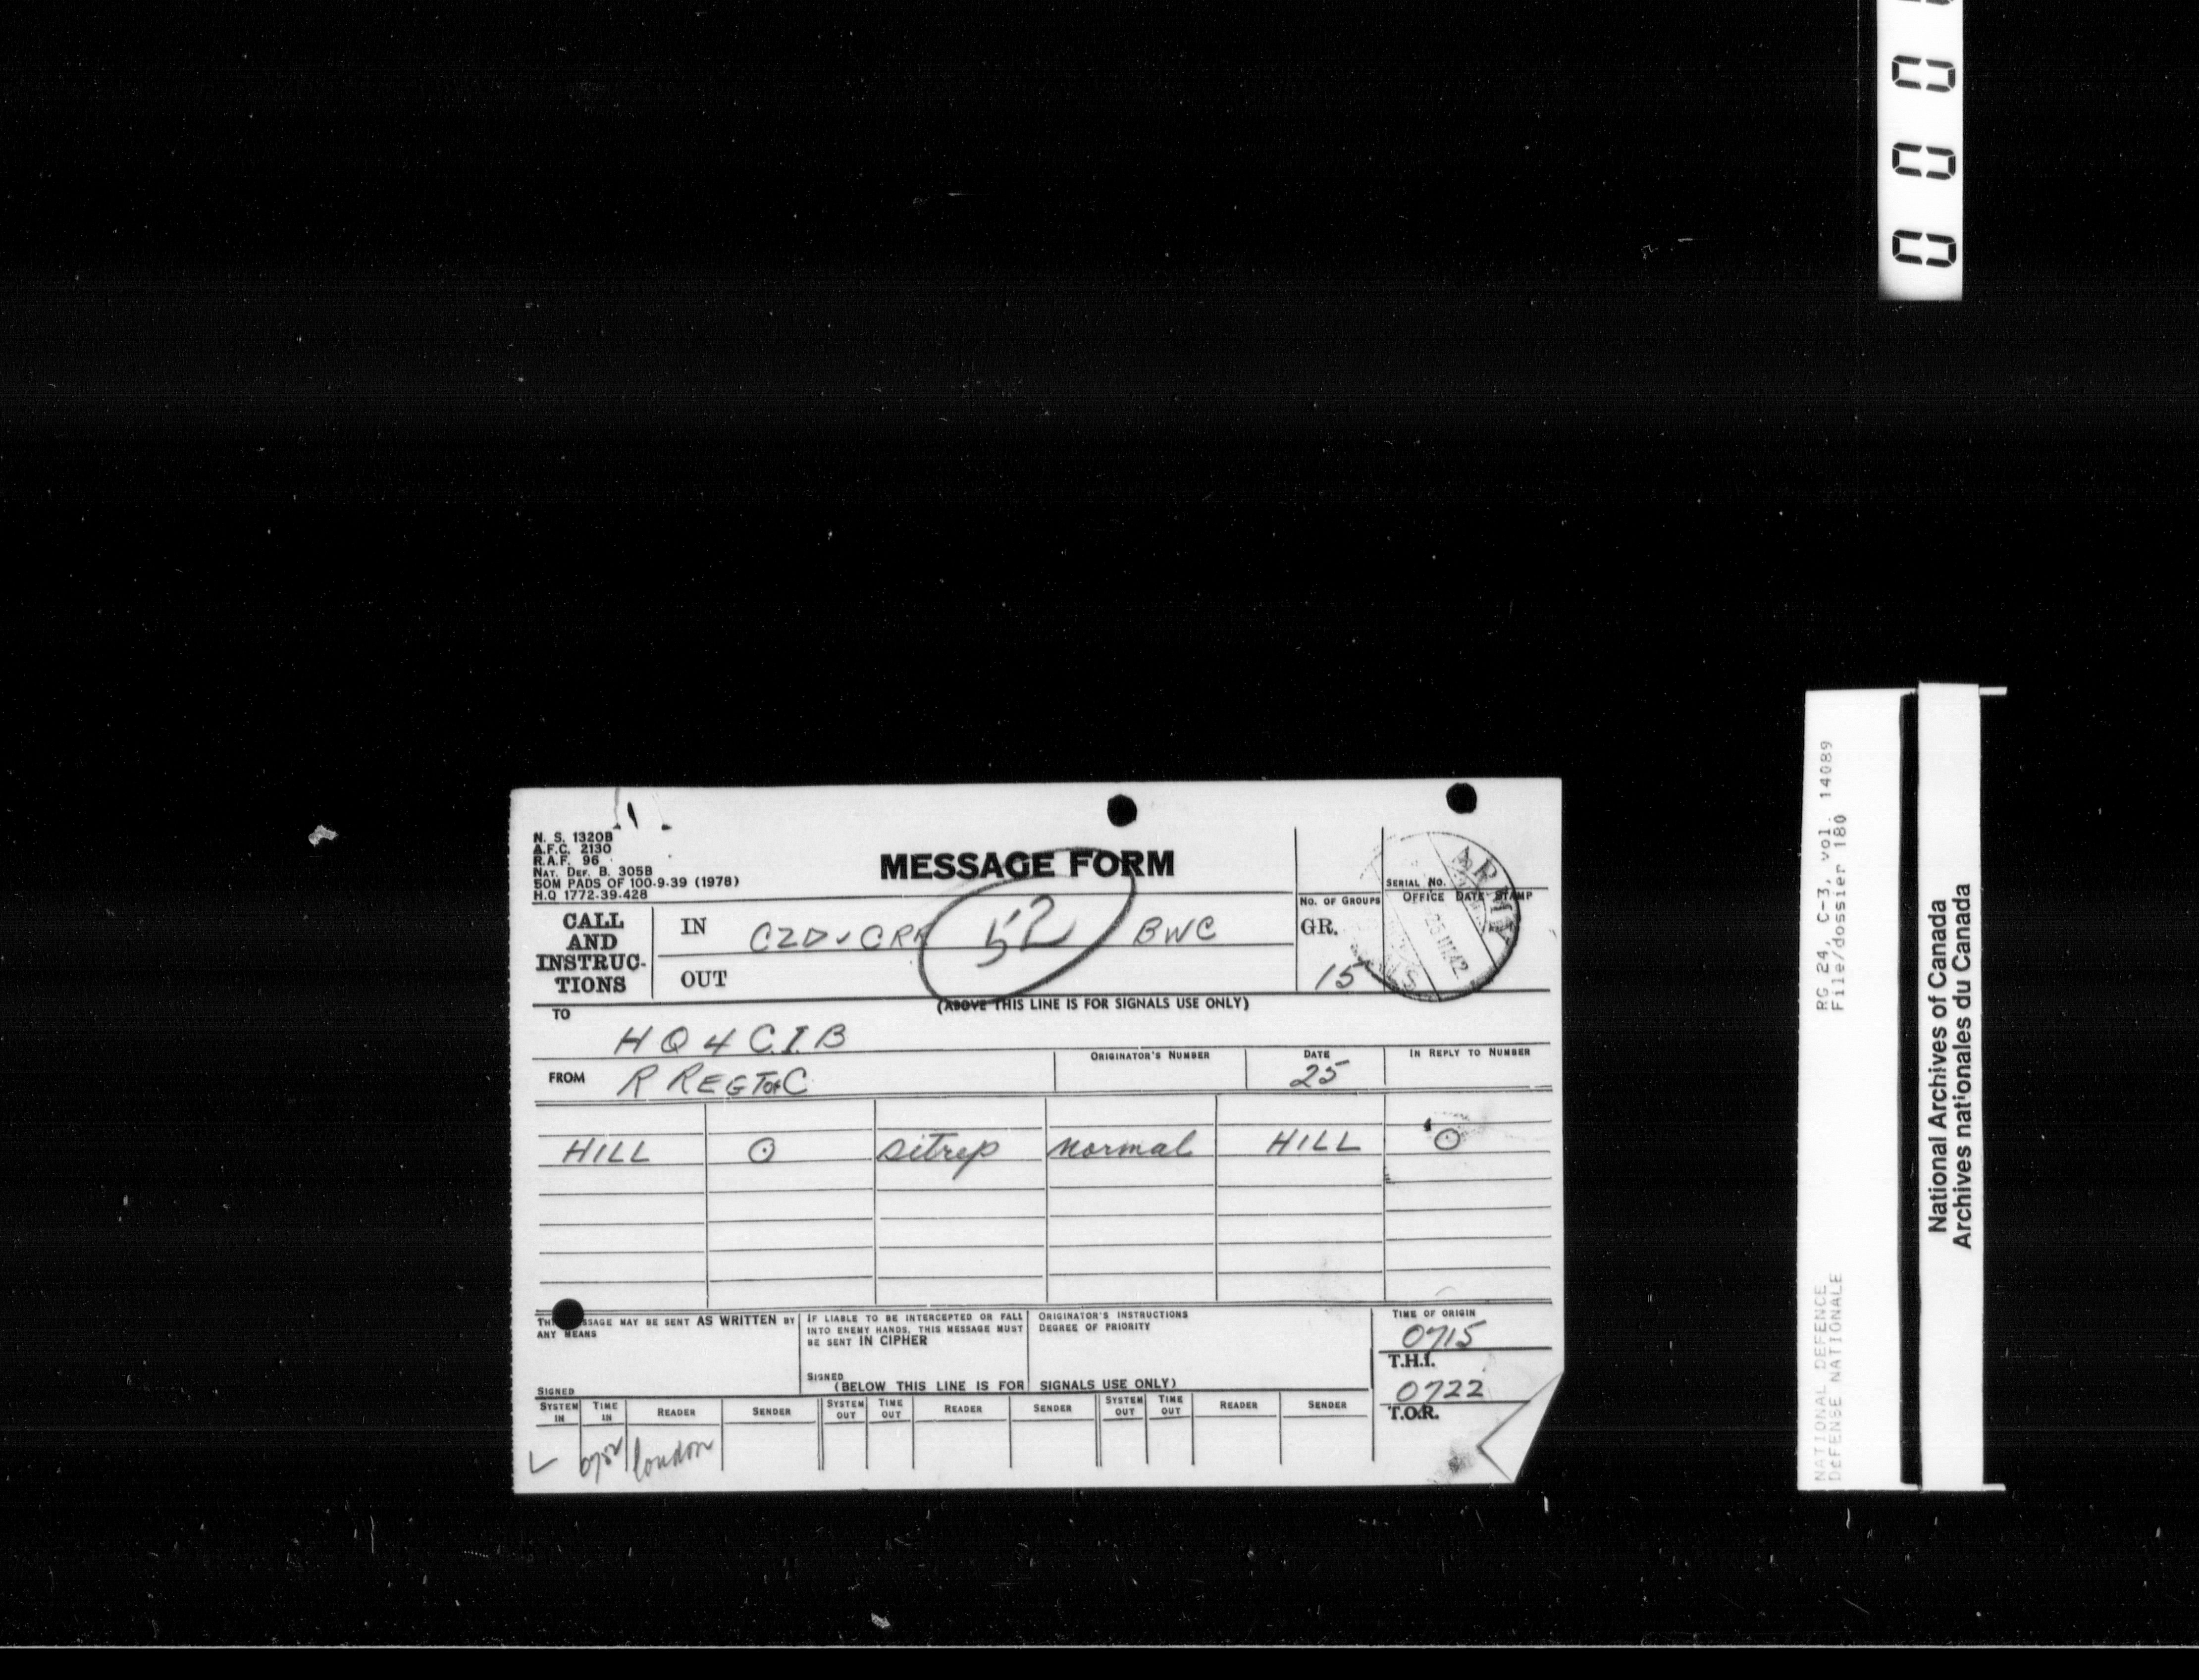 0 0 0
N. S. 1320B
A.F.C. 2130
R.A.F. 96
NAT. DEF. B. 305B
50M PADS OF 100-9-39 (1978)
H.Q 1772-39-428
MESSAGE FORM
SERIAL No.
OFFICE DATE STAMP
ARMY
SIGNALS
42
No. OF GROUPS
GR.
15
CALL AND INSTRUC- TIONS
IN CZD v CRR 52 BWC
OUT
(ABOVE THIS LINE IS FOR SIGNALS USE ONLY)
TO
HQ 4 C.I.B
FROM R REGT of C
ORIGINATOR'S NUMBER
DATE
25
IN REPLY TO NUMBER
HILL ⊙ sitrep normal HILL ⊙
SSAGE MAY BE SENT AS WRITTEN BY
ANY MEANS
SIGNED
IF LIABLE TO BE INTERCEPTED OR FALL
INTO ENEMY HANDS, THIS MESSAGE MUST
BE SENT IN CIPHER
SIGNED
ORIGINATOR'S INSTRUCTIONS
DEGREE OF PRIORITY
(BELOW THIS LINE IS FOR SIGNALS USE ONLY)
TIME OF ORIGIN
0715
T.H.I.
0722
T.O.R.
SYSTEM IN TIME IN READER SENDER SYSTEM OUT TIME OUT READER SENDER SYSTEM OUT TIME OUT READER SENDER
L london
RG 24, C-3, vol. 14089
File/dossier 180
NATIONAL DEFENCE
DÉFENSE NATIONALE
National Archives of Canada
Archives nationales du Canada